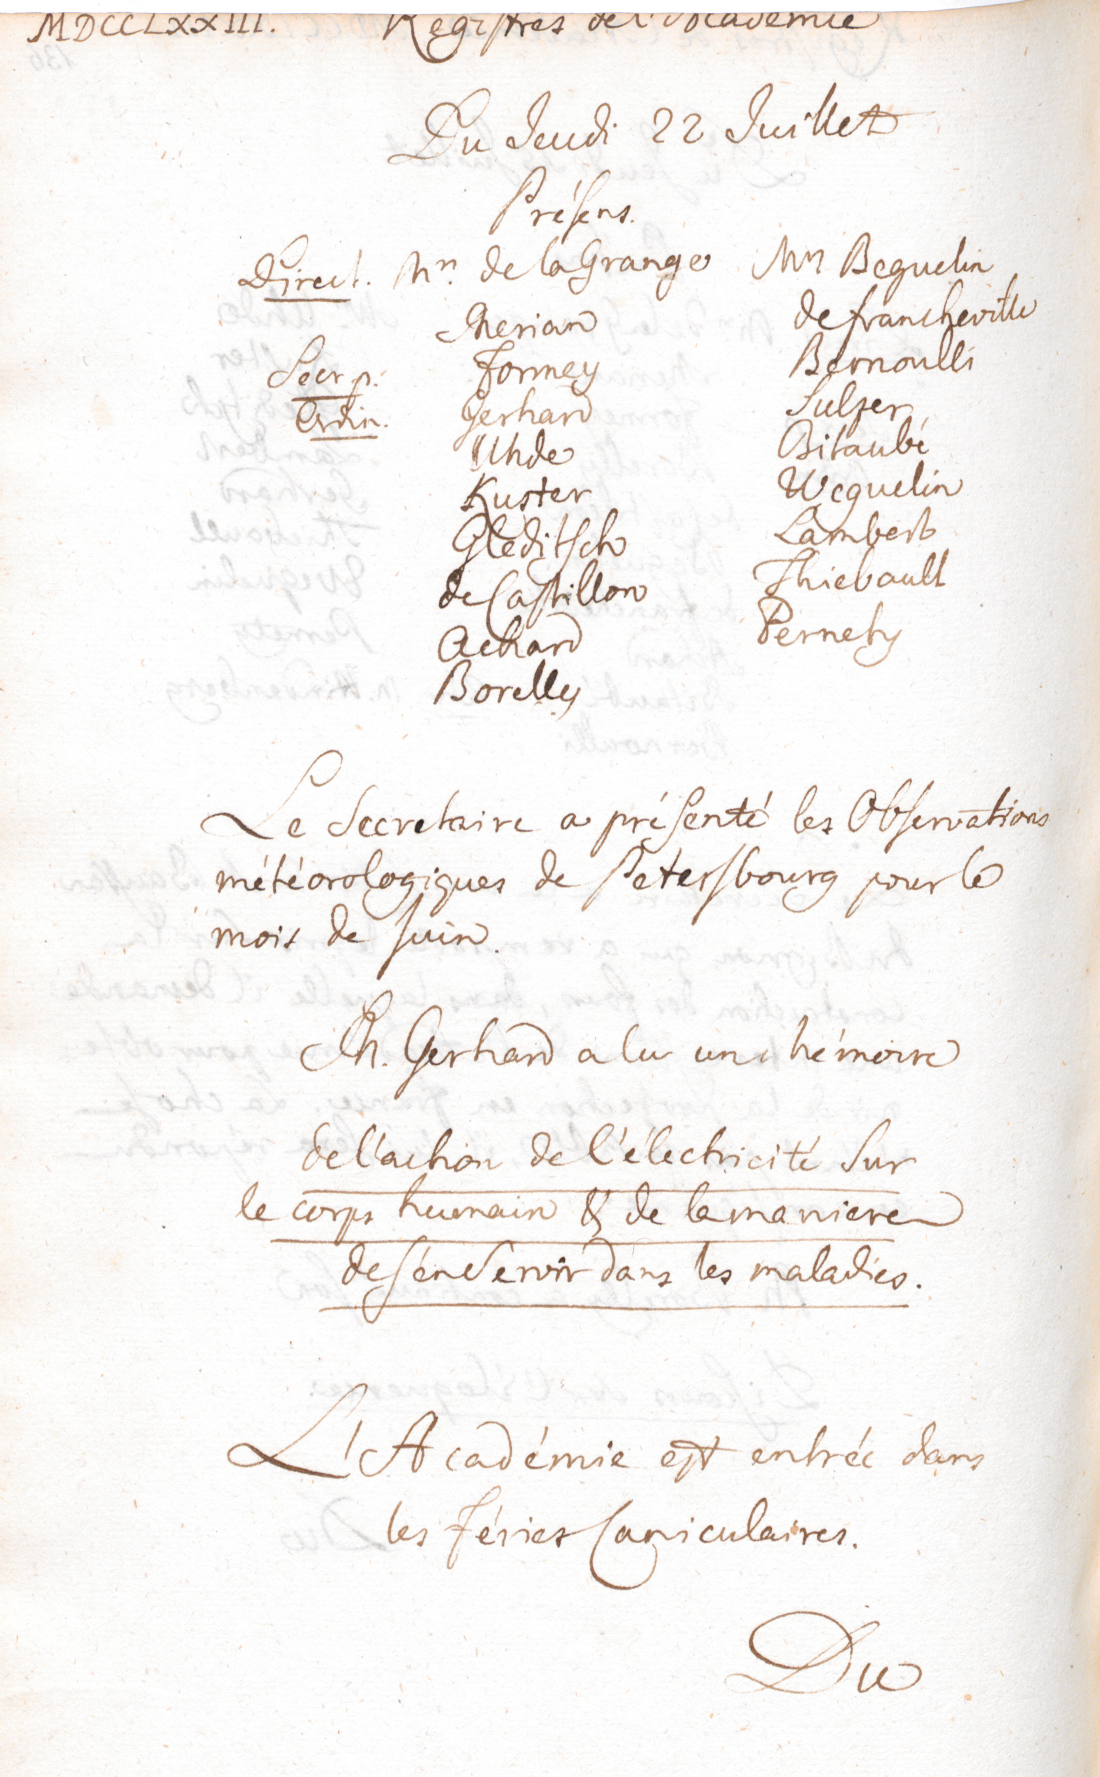 MDCCLXXIII. Registres de l'Académie
Du Jeudi 22 Juillet
Présens.
Direct. Mrs. de la Grange
Merian
Secr. p. Formey
Ordin. Gerhard
Uhde
Kuster
Gleditsch
de Castillon
Achard
Borelly
Mrs Beguelin
de francheville
Bernoulli
Sulzer
Bitaubé
Weguelin
Lambert
Thiebault
Pernety
Le Secretaire a présenté les Observations
météorologiques de Petersbourg pour le
mois de Juin.
Mr. Gerhard a lu un Mémoire
de l'action de l'électricité sur
le corps humain & de la maniere
de s'en servir dans les maladies.
L'Académie est entrée dans
les Féries Caniculaires.
Du